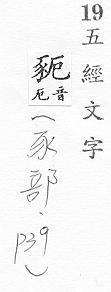 19五經文字
豟音厄(豕部、P39)